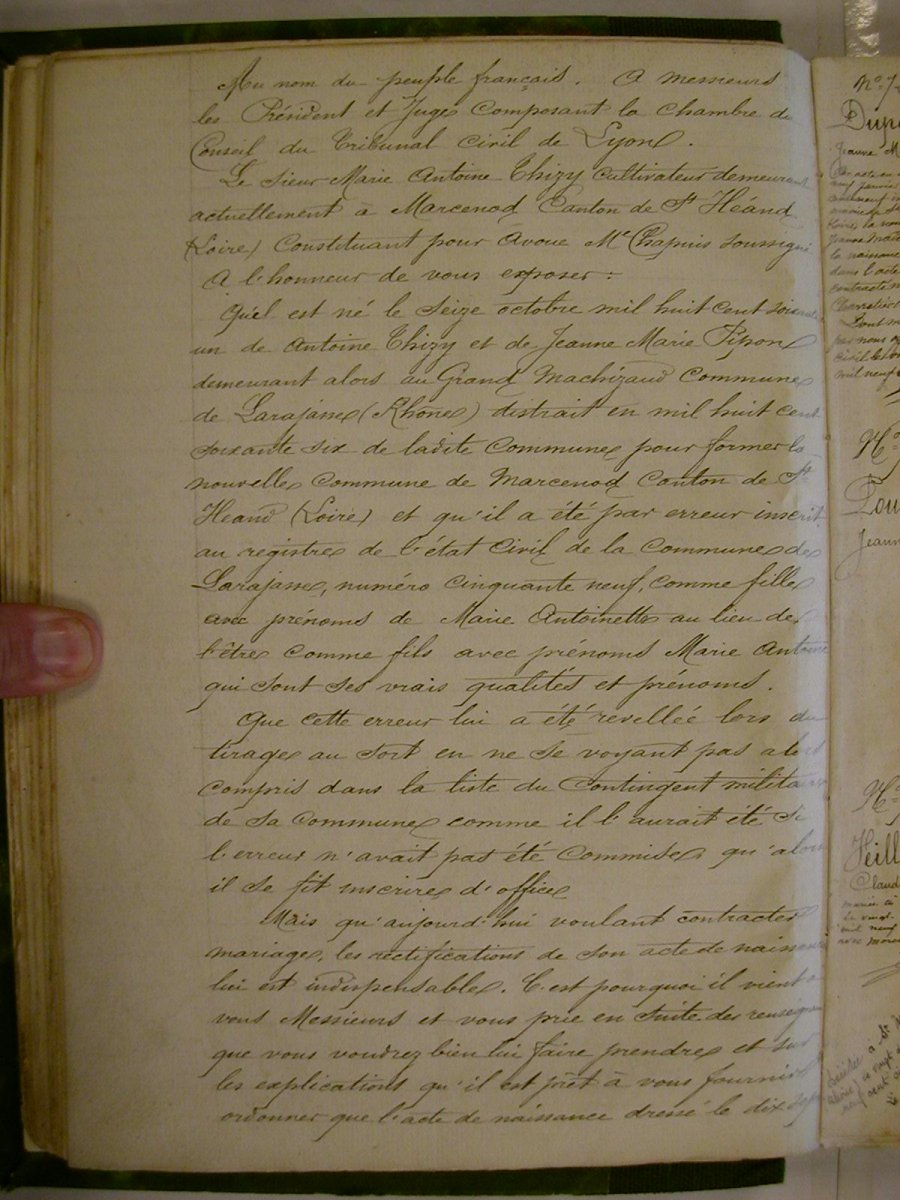 Au nom du peuple français. A messieurs
les Président et Juges composant la chambre du
Conseil du Tribunal civil de Lyon.
Le sieur Marie Antoine Thizy cultivateur demeurant
actuellement à Marcenod Canton de St Héand
(Loire) constituant pour avoué Me Chapuis soussigné
A l'honneur de vous exposer :
Qu'il est né le seize octobre mil huit cent soixante
un de Antoine Thizy et de Jeanne Marie Pipon
demeurant alors au Grand Machizaud Commune
de Larajasse (Rhône) distrait en mil huit cent
soixante six de ladite Commune pour former la
nouvelle Commune de Marcenod Canton de St
Heand (Loire) et qu'il a été par erreur inscrit
au registre de l'état civil de la Commune de
Larajasse, numéro cinquante neuf, comme fille
avec prénoms de Marie Antoinette au lieu de
l'être comme fils avec prénoms Marie Antoine
qui sont ses vrais qualités et prénoms.
Que cette erreur lui a été révellée lors du
tirage au sort en ne se voyant pas alors
compris dans la liste du contingent militaire
de sa commune comme il l'aurait été si
l'erreur n'avait pas été commise, qu'alors
il se fit inscrire d'office
Mais qu'aujourd'hui voulant contracter
mariage, les rectifications de son acte de naissance
lui est indispensable. C'est pourquoi il vient a
vous Messieurs et vous prie en suite des renseignem
que vous voudrez bien lui faire prendre et sur
les explications qu'il est prêt à vous fournir
ordonner que l'acte de naissance dressé le dix sept
No 7
Dup
Jeanne M
Jeann
Claud